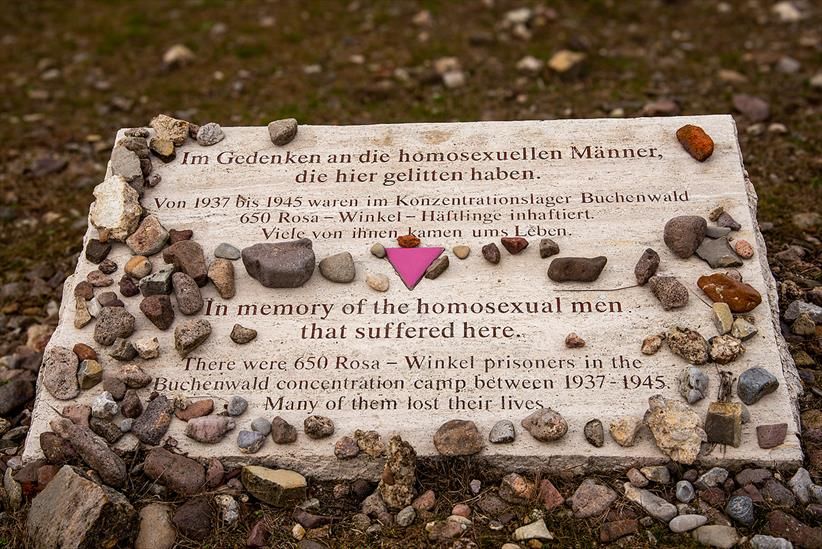 Im Gedenken an die homosexuellen Männer,
die hier gelitten haben.
Von 1937 bis 1945 waren im Konzentrationslager Buchenwald
650 Rosa – Winkel – Häftlinge inhaftiert.
Viele von ihnen kamen ums Leben.
In memory of the homosexual men
that suffered here.
There were 650 Rosa – Winkel prisoners in the
Buchenwald concentration camp between 1937 - 1945.
Many of them lost their lives.